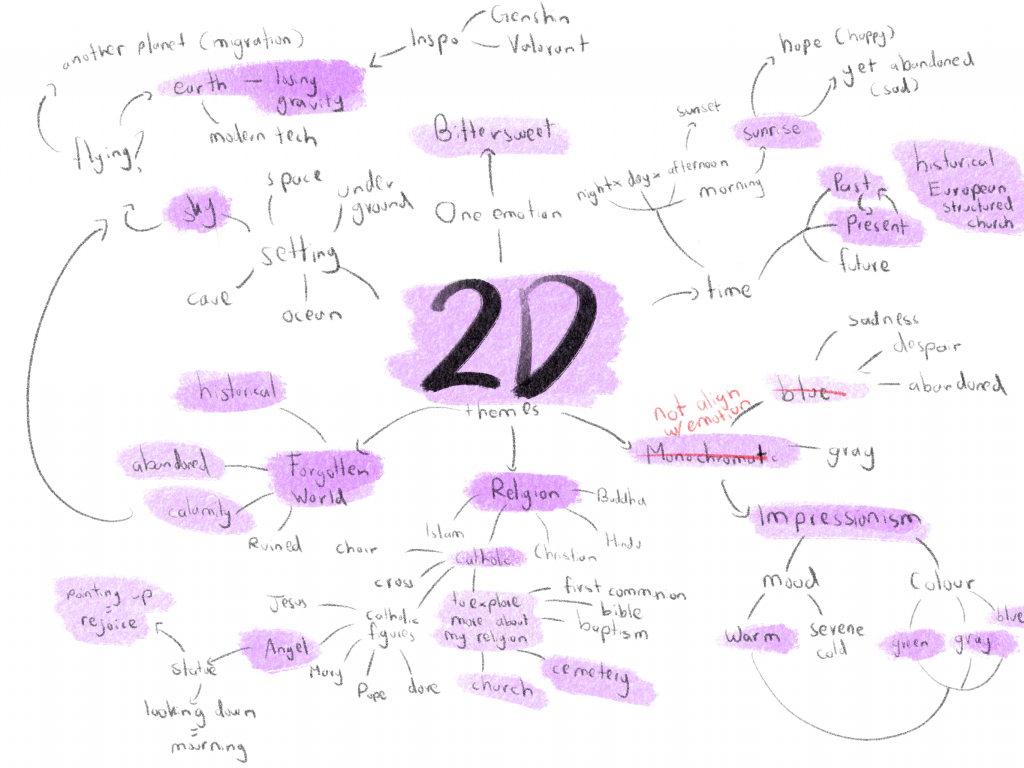 Genshin
Inspo
Valorant
another planet (migration)
earth — losing
gravity
modern tech
flying?
hope (happy)
yet abandoned
(sad)
sunset
sunrise
Bittersweet
space
under
ground
sky
setting
cave
ocean
One emotion
night x day x afternoon
morning
Past
Present
future
historical
European
structured
church
time
2D
themes
historical
abandoned
calamity
Forgotten
World
Ruined
Religion
Buddha
Hindu
Christian
Islam
Catholic
choir
cross
catholic
figures
Jesus
Angel
Mary
Pope
dove
statue
pointing up
=
rejoice
looking down
=
mourning
to explore
more about
my religion
first communion
bible
baptism
church
cemetery
not align
w/emotion
Monochromatic
blue
sadness
despair
abandoned
gray
Impressionism
mood
warm
serene
cold
Colour
green
gray
blue